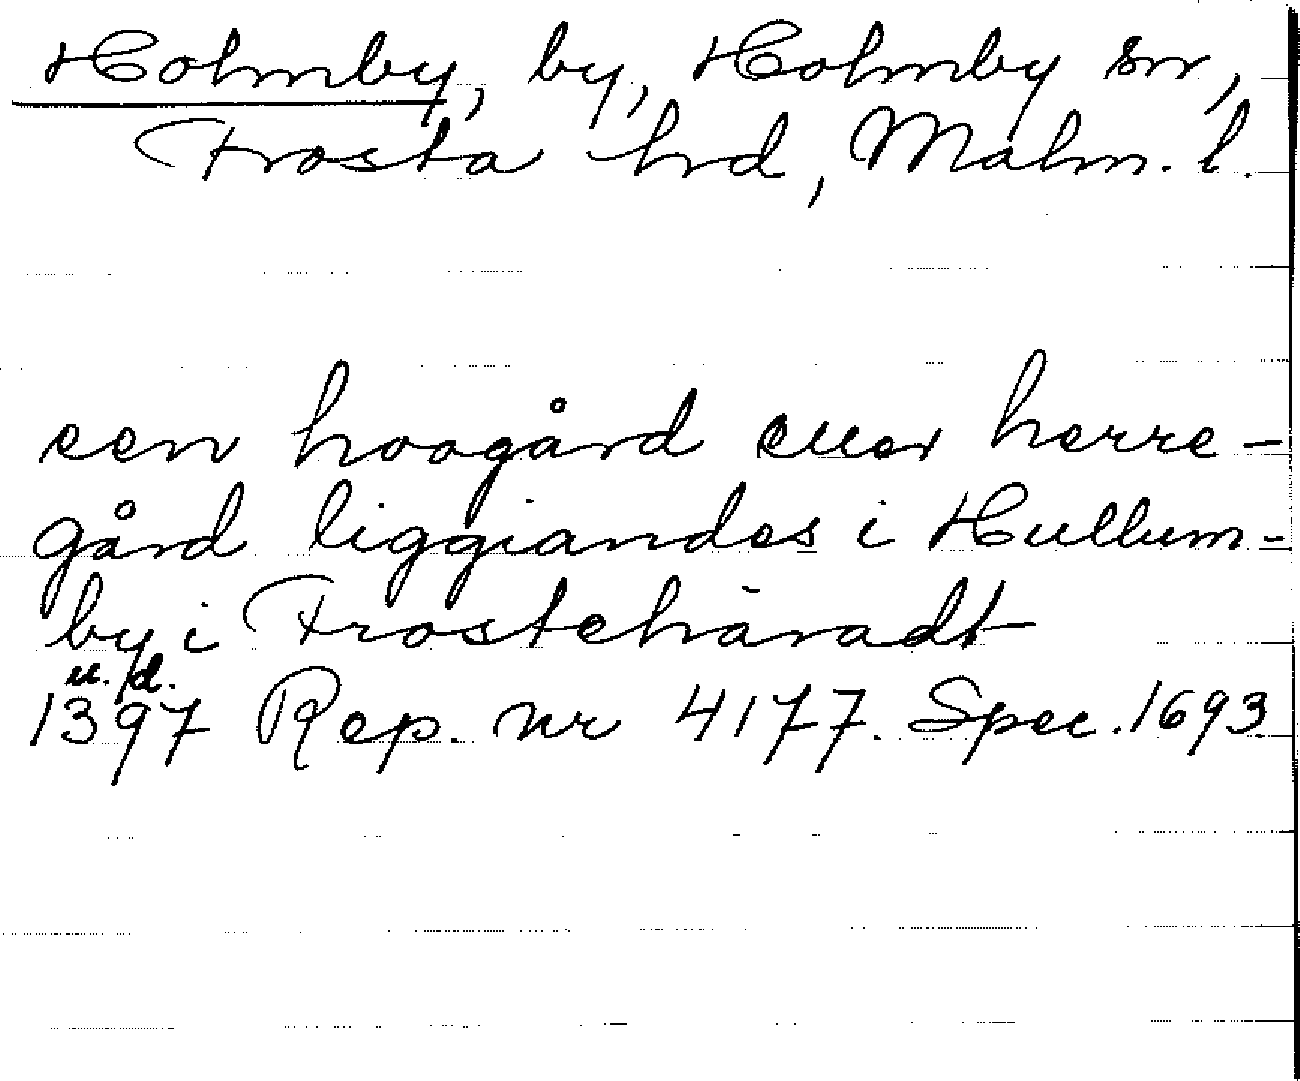 Holmby, by, Holmby sn,
Frosta hrd, Malm. l.
een hoogård eller herre-
gård liggiandes i Hullum-
by i Frostehäradt
u. d.
1397 Rep. nr 4177. Spec. 1693